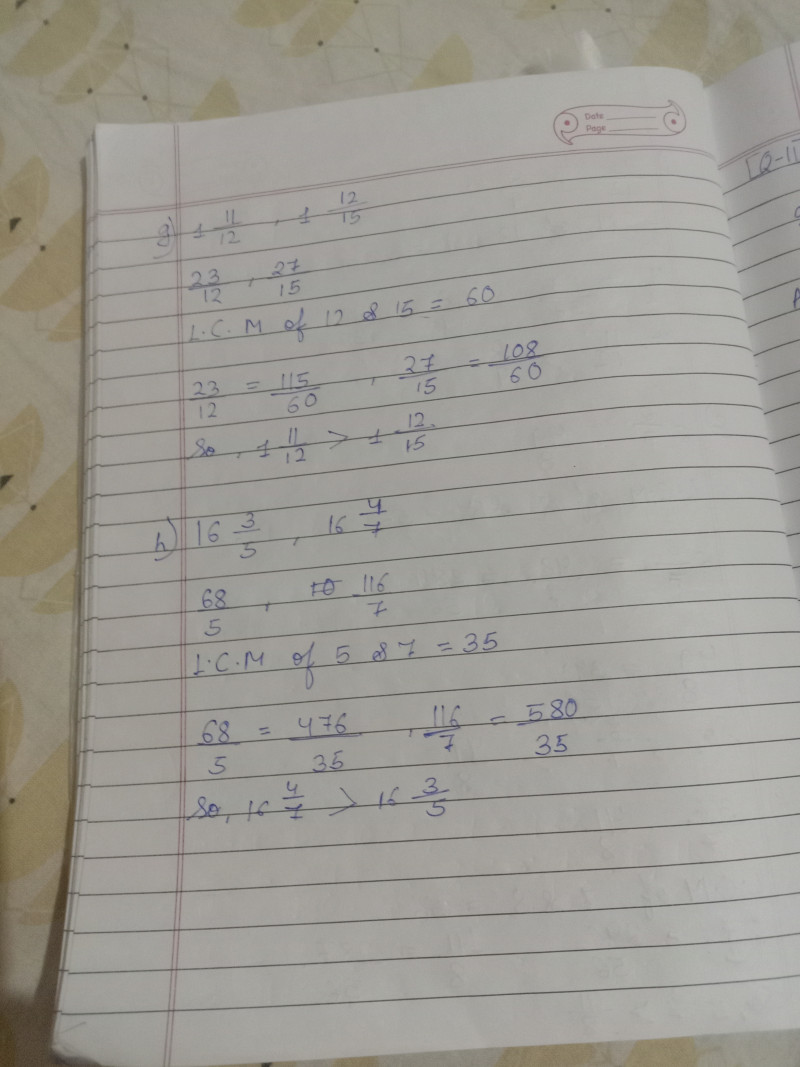 Date
Page
[Q-11
g) 1 11/12 , 1 12/15
23/12 , 27/15
L.C.M of 12 & 15 = 60
23/12 = 115/60 , 27/15 = 108/60
So, 1 11/12 > 1 12/15
h) 16 3/5 , 16 4/7
68/5 , 116/7
L.C.M of 5 & 7 = 35
68/5 = 476/35 , 116/7 = 580/35
So, 16 4/7 > 16 3/5